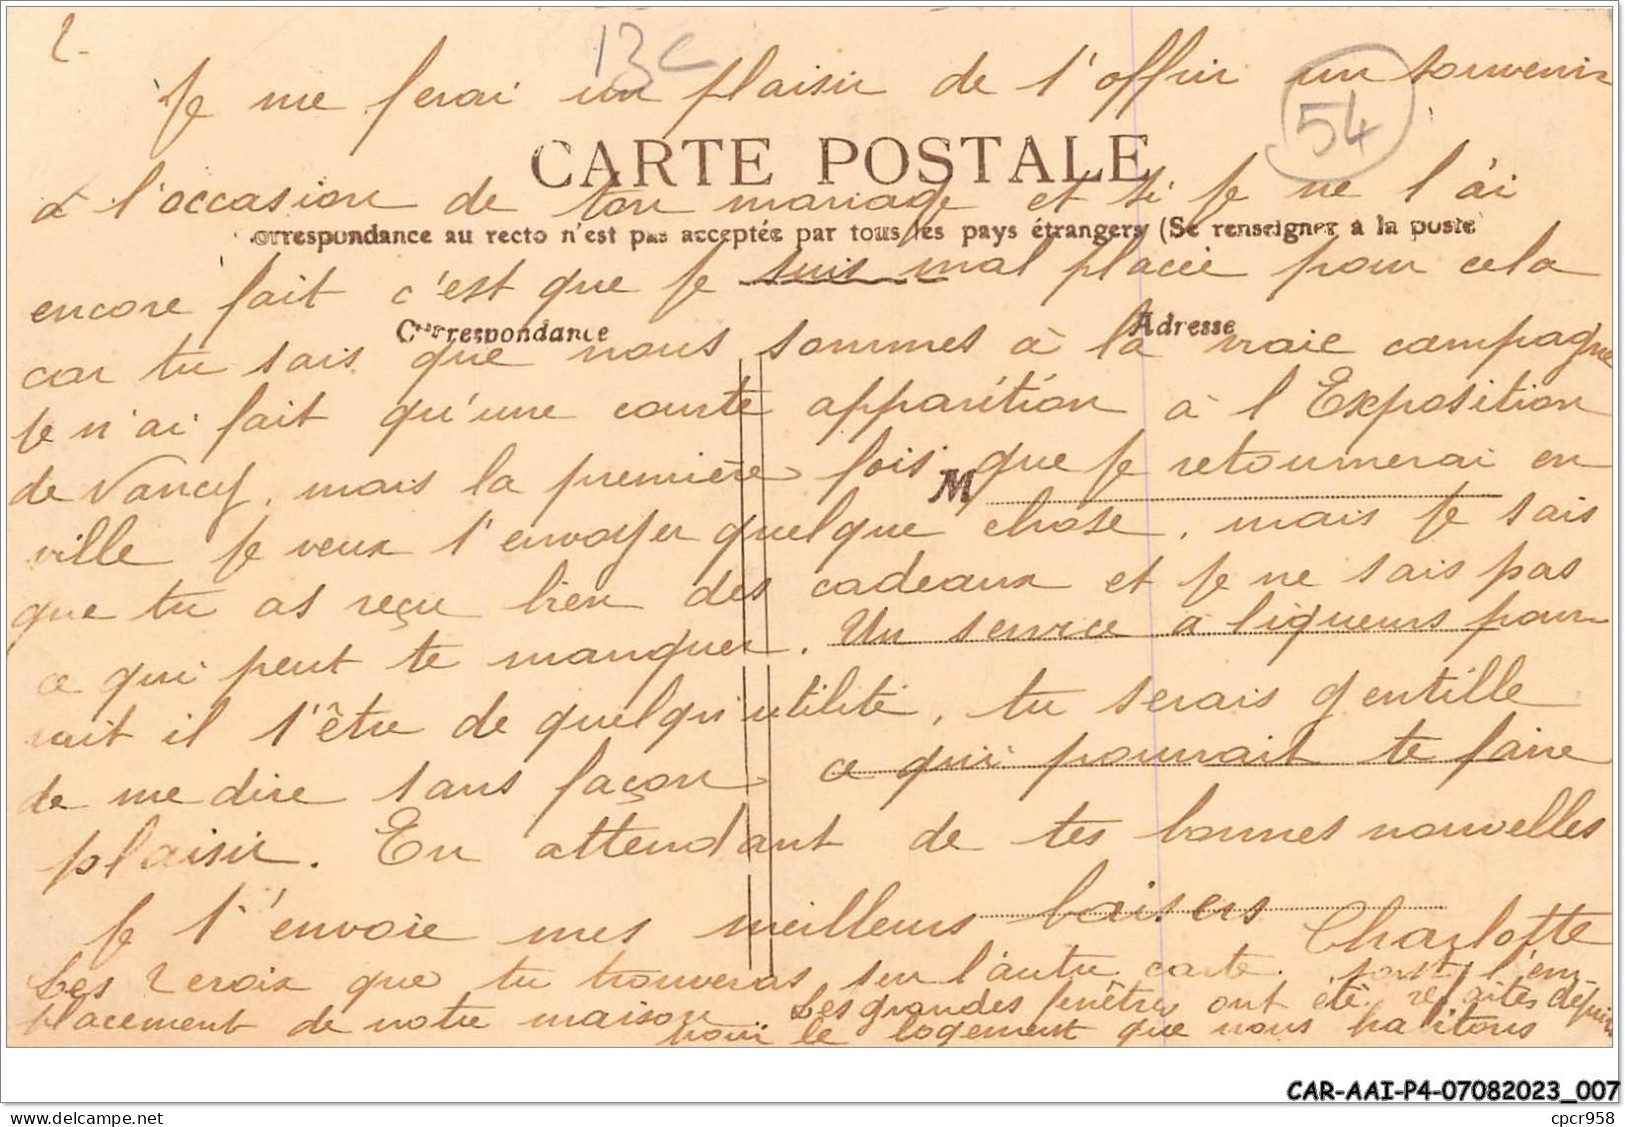 2.
13C
54
Je me ferai un plaisir de t'offrir un souvenir
CARTE POSTALE
à l'occasion de ton mariage et si je ne l'ai
orrespondance au recto n'est pas acceptée par tous les pays étrangers (Se renseigner à la poste
encore fait c'est que je suis mal placée pour cela
Correspondance
Adresse
car tu sais que nous sommes à la vraie campagne
je n'ai fait qu'une courte apparition à l'Exposition
de Nancy, mais la première fois que je retournerai en
M
ville je veux t'envoyer quelque chose, mais je sais
que tu as reçu bien des cadeaux et je ne sais pas
ce qui peut te manquer. Un service à liqueurs pour-
rait il t'être de quelqu'utilité, tu serais gentille
de me dire sans façon ce qui pourrait te faire
plaisir. En attendant de tes bonnes nouvelles
je t'envoie mes meilleurs baisers Charlotte
Les 2 croix que tu trouveras sur l'autre carte sont l'em-
placement de notre maison Les grandes fenêtres ont été refaites depuis
pour le logement que nous habitons
CAR-AAI-P4-07082023_007
www.delcampe.net
cpcr958